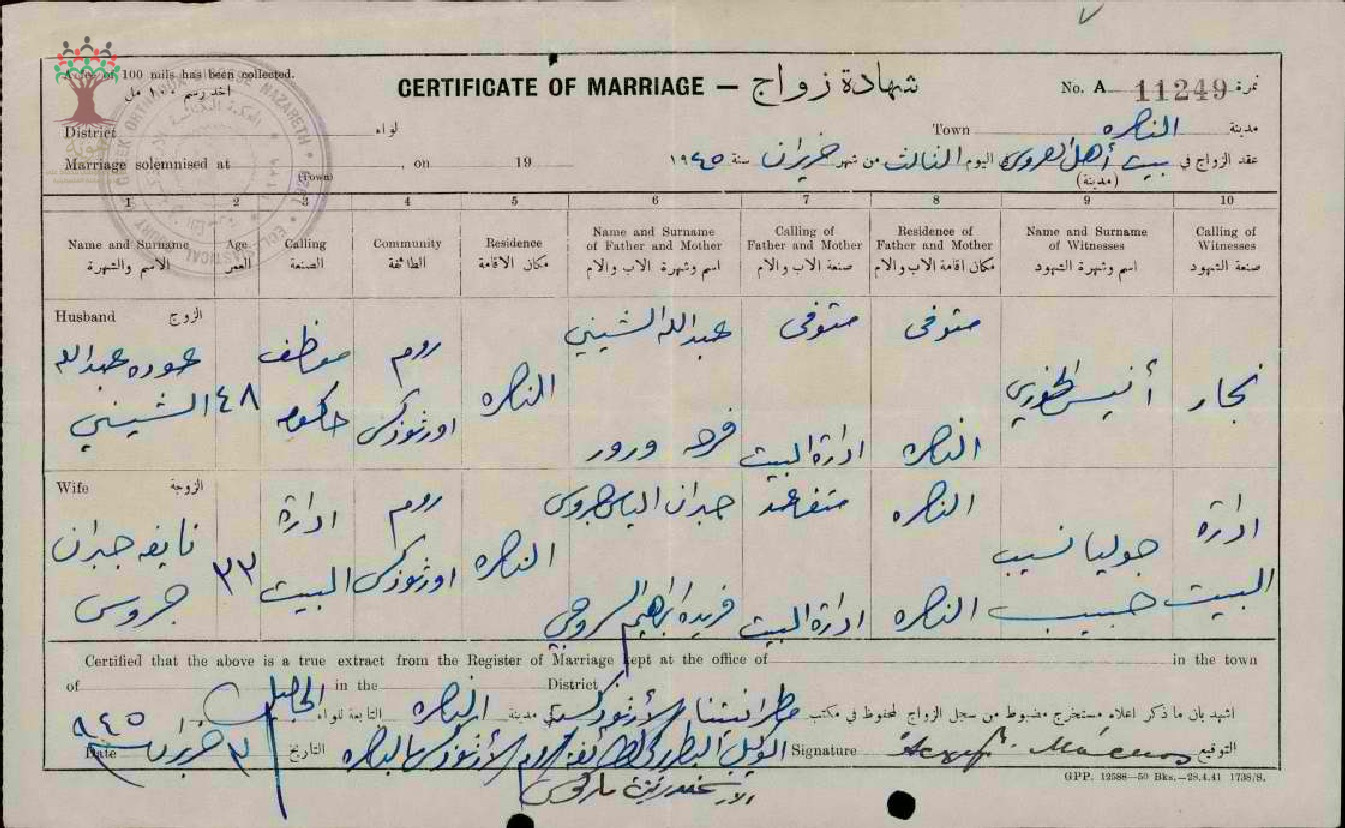 A fee of 100 mils has been collected.
اخذ رسم ١٠٠ مل
CERTIFICATE OF MARRIAGE — شهادة زواج
No. A 11249 نمرة
District لواء
Town الناصره مدينة
Marriage solemnised at , on 19
(Town)
عقد الزواج في بيت أهل العروس في اليوم الثالث من شهر حزيران سنة ١٩٤٥
(مدينة)
1 2 3 4 5 6 7 8 9 10
Name and Surname Age Calling Community Residence Name and Surname of Father and Mother Calling of Father and Mother Residence of Father and Mother Name and Surname of Witnesses Calling of Witnesses
الاسم والشهرة العمر الصنعة الطائفة مكان الاقامة اسم وشهرة الاب والام صنعة الاب والام مكان اقامة الاب والام اسم وشهرة الشهود صنعة الشهود
Husband الزوج
عوده عبدالله الشيني
٤٨
موظف حكومه
روم اورثوذكس
الناصره
عبدالله الشيني
متوفى
متوفى
فرحه ورور
ادارة البيت
الناصره
أنيس الخوري
نجار
Wife الزوجة
نايفه جبران جروس
٣٣
ادارة البيت
روم اورثوذكس
الناصره
جبران الياس جروس
متقاعد
الناصره
فريده ابراهيم السروجي
ادارة البيت
الناصره
جوليا نسيب حبيب
ادارة البيت
Certified that the above is a true extract from the Register of Marriage kept at the office of in the town
of in the District
اشهد بان ما ذكر اعلاه مستخرج مضبوط من سجل الزواج المحفوظ في مكتب مطرانيتنا الأرثوذكسية مدينة الناصرة التابعة للواء الجليل
Date ٣ حزيران ٩٤٥ التاريخ
الوكيل البطريركي لطائفة الروم الأرثوذكس بالناصره
Signature التوقيع
الارشمندريت ماركوس
GPP. 12588—50 Bks.—28.4.41 1738/8.